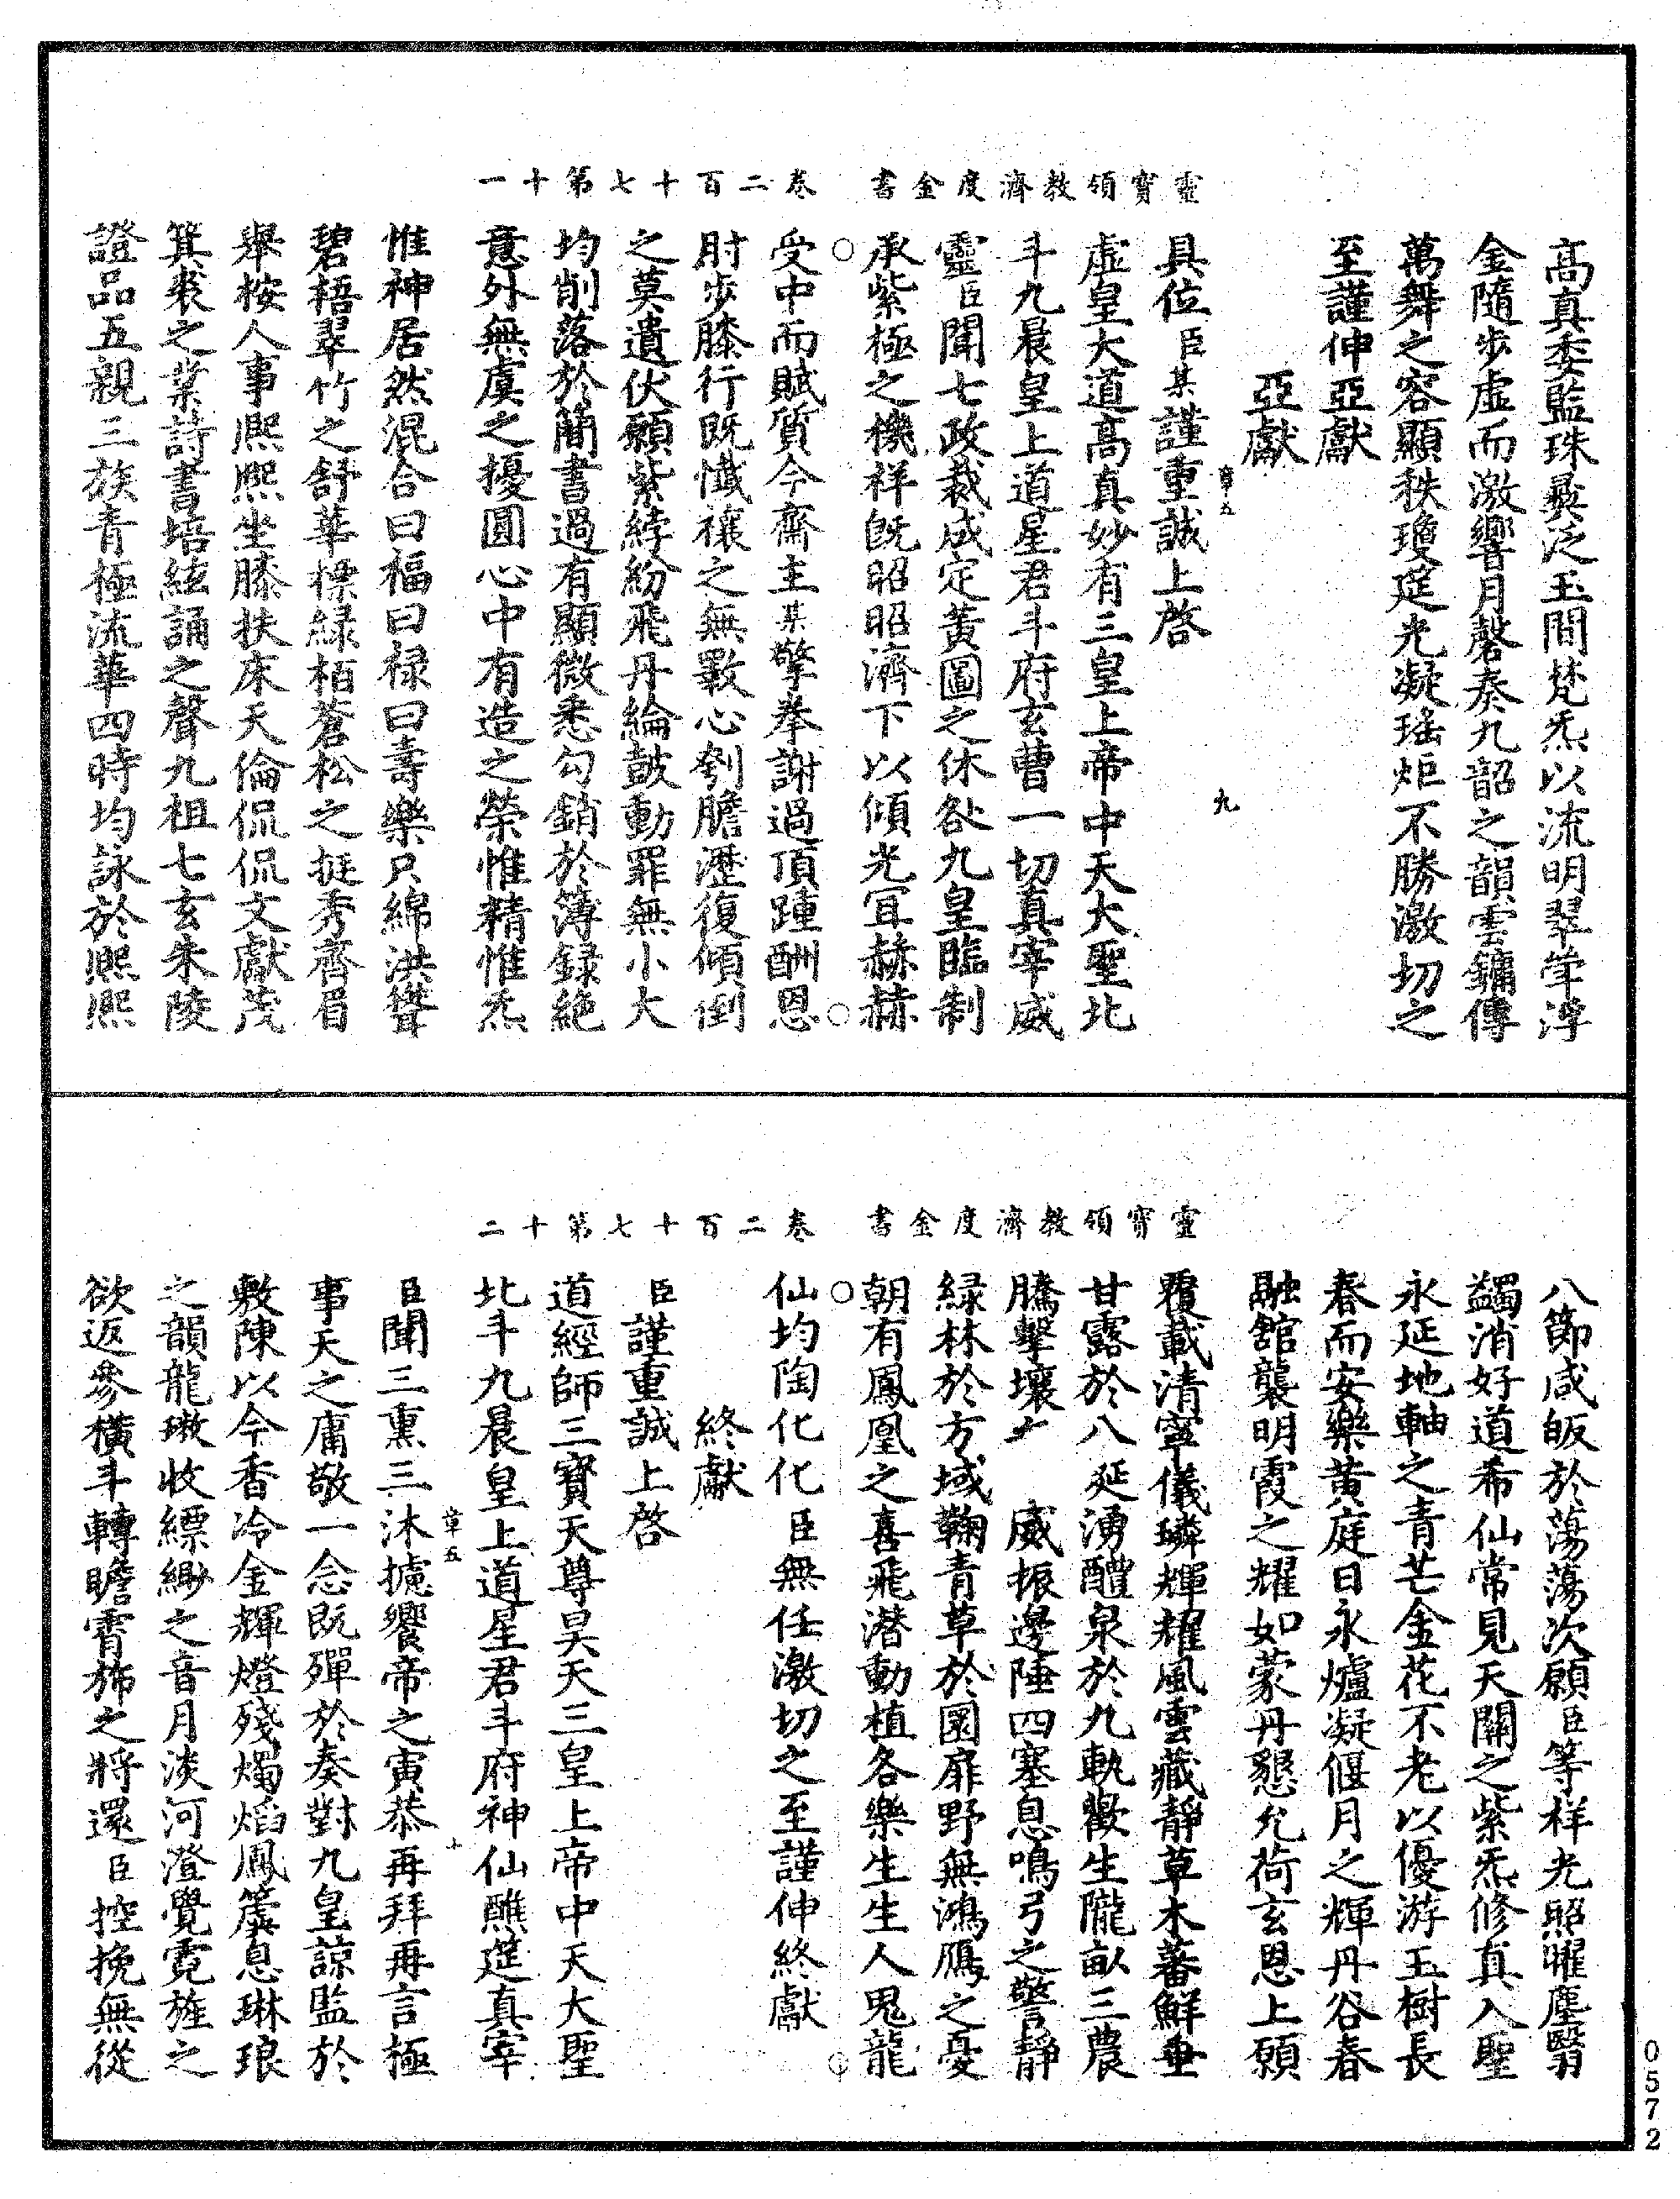 靈寶領教濟度金書 卷二百十七第十一
高真委監珠彛泛玉間梵炁以流明翠䇯浮
金隨步虛而激響月磬奏九韶之韻雲鏞傳
萬舞之容顯秩瓊筵光凝瑤炬不勝激切之
至謹伸亞獻
亞獻
章五
九
具位臣某謹重誠上啓
虛皇大道高真妙有三皇上帝中天大聖北
斗九晨皇上道星君斗府玄曹一切真宰威
靈臣聞七政裁成定黃圖之休咎九皇臨制
承紫極之機祥既昭昭濟下以傾光冝赫赫
受中而賦質今齋主某擎拳謝過頂踵酬恩
肘步膝行既懺禳之無斁心刳膽瀝復傾倒
之莫遺伏願紫綍紛飛丹綸鼓動罪無小大
均削落於簡書過有顯微悉勾銷於簿録絶
意外無虞之擾圓心中有造之榮惟精惟炁
惟神居然混合曰福曰禄曰壽樂只綿洪聳
碧梧翠竹之舒華樑緑栢蒼松之挺秀齊眉
舉桉人事熙熙坐膝扶床天倫侃侃文獻茂
箕裘之業詩書培絃誦之聲九祖七玄朱陵
證品五親三族青極流華四時均詠於熙熙
靈寶領教濟度金書 卷二百十七第十二
八節咸皈於蕩蕩次願臣等样光照曜塵翳
蠲消好道希仙常見天關之紫炁修真入聖
永延地軸之青芒金花不老以優游玉樹長
春而安樂黃庭日永爐凝偃月之輝丹谷春
融舘襲明霞之耀如蒙丹懇允荷玄恩上願
覆載清寧儀璘輝耀風雲藏靜草木蕃鮮垂
甘露於八延湧醴泉於九軌歡生隴畝三農
騰擊壤 威振邊陲四塞息鳴弓之警靜
緑林於方域鞠青草於圜扉野無鴻鴈之憂
朝有鳳凰之喜飛潜動植各樂生生人鬼龍
仙均陶化化臣無任激切之至謹伸終獻
終獻
臣謹重誠上啓
道經師三寶天尊昊天三皇上帝中天大聖
北斗九晨皇上道星君斗府神仙醮筵真宰
章五
十
臣聞三熏三沐攄饗帝之寅恭再拜再言極
事天之庸敬一念既殫於奏對九皇諒監於
敷陳以今香冷金輝燈殘燭焰鳳簴息琳琅
之韻龍璈收縹緲之音月淡河澄覺霓旌之
欲返參橫斗轉瞻霄斾之將還臣控挽無從
0572